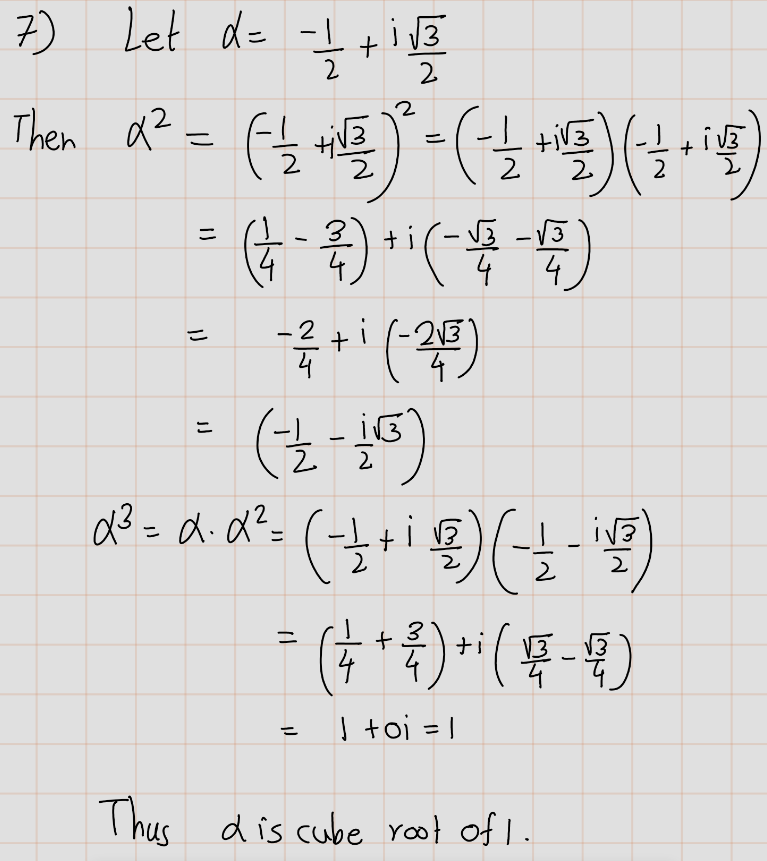 7) Let α = -1/2 + i √3/2
Then α² = (-1/2 + i√3/2)² = (-1/2 + i√3/2)(-1/2 + i √3/2)
= (1/4 - 3/4) + i(-√3/4 - √3/4)
= -2/4 + i (-2√3/4)
= (-1/2 - i/2 √3)
α³ = α · α² = (-1/2 + i √3/2)(-1/2 - i√3/2)
= (1/4 + 3/4) + i(√3/4 - √3/4)
= 1 + 0i = 1
Thus α is cube root of 1.